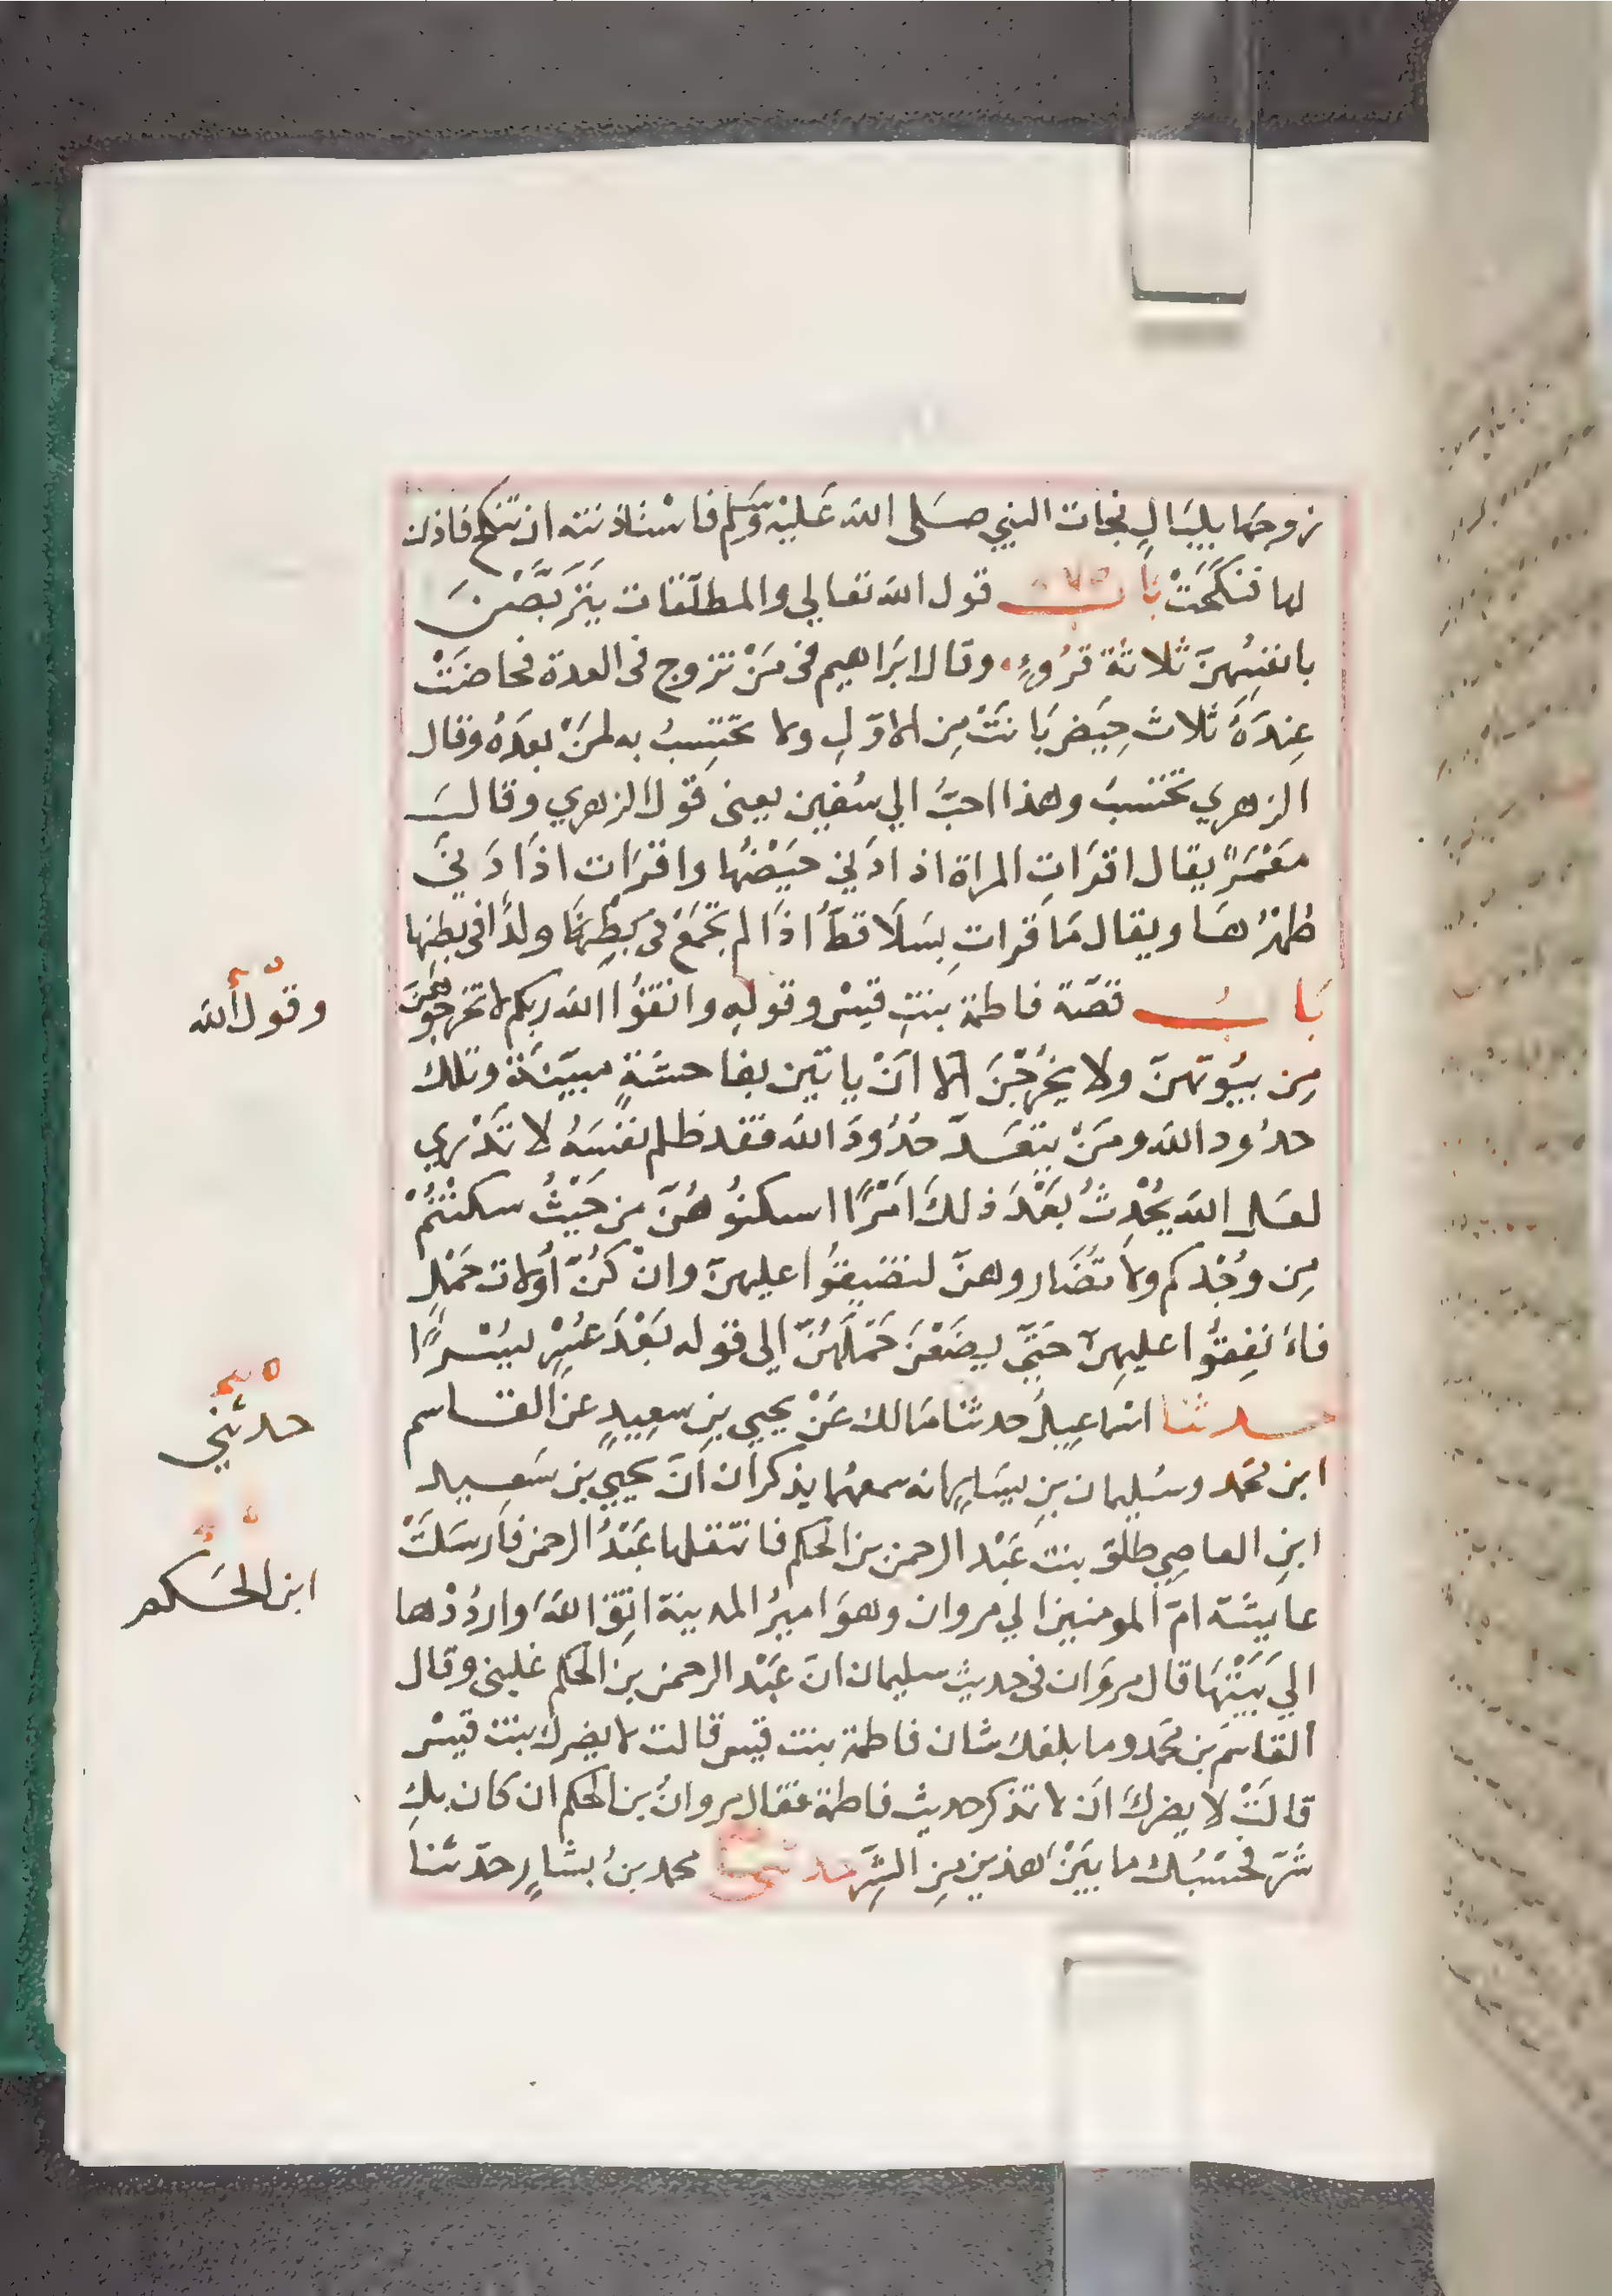 زوجها بليال فجات النبي صلى الله عليه وسلم فاستاذنته ان تنكح فاذن
لها فنكحَتْ باب قول الله تعالى والمطلّقات يَتَرَبَّصْنَ
بانفسِهنّ ثلاثة قُرُوءٍ وقال ابراهيم في مَنْ تزوج في العدة فحاضَتْ
عِندَهُ ثلاث حِيَضٍ بَانَتْ مِن الاوّلِ ولا تحتسِبُ به لمَنْ بعدَهُ وقال
الزهري تحتسبُ وهذا احبُّ الي سُفين يعني قول الزهري وقالَ
مَعْمَرٌ يقال اقرَاتِ المراة اذا دَنَي حَيْضُها واقرَات اذَا دَنَيَ
طُهْرُها ويقال مَا قرات بِسَلًا قطُّ اذَا لم تجمَعْ في بَطِنهَا ولدًا في بطنها
بَابُ قصّة فاطمة بنتِ قيسٍ وقولِهِ واتقُوا الله ربكم لا تخرجُوهُنَّ
مِن بيُوتهنّ ولا يخرُجْنَ الا اَنْ ياتين بفاحشةٍ مبيّنَةٍ وتلك
حدُود الله ومَنْ يتعَدَّ حُدُودَ الله فقد ظلم نفسَهُ لا تَدْرِي
لعَل الله يُحْدِثُ بَعْدَ ذلكَ امْرًا اسكنُوهُنّ من حَيْثُ سكنْتُمْ
مِن وُجْدكم ولا تُضَاروهنّ لتضيقُوا عليهنّ وانْ كُنّ أُولات حَمْلٍ
فاَنفِقُوا عليهنّ حَتَّي يضَعْنَ حَمْلَهُنّ الي قوله بَعْدَ عُسْرٍ يُسْرًا
حدثنا اسماعيلُ حدثنا مَالك عَنْ يحيي بنِ سعِيدٍ عن القاسم
ابن محمد وسُليمان بنِ يسَارٍ انه سمعهُما يذكران اَنّ يحيي بن سَعِيد
ابنِ العاصِي طلّق بنتَ عَبْد الرحمن بن الحكم فانتقلها عَبْدُ الرحمن فاَرسَلَتْ
عايشة امّ المومنين الي مروان وهوَ اميرُ المدينة اتّقِ اللهَ وارْدُدْها
الي بَيْتِهَا قال مروَان في حديثِ سليمان انّ عَبْد الرحمن بن الحكم غلبني وقال
القاسم بن محمد وما بلغك شان فاطمة بنت قيس قالت لا يضرك بنت قيس
قالَتْ لا يضركَ اَن لا تذكر حديث فاطمة فقال مروانُ بن الحكم ان كان بكِ
شَرّ فحَسْبُك ما بَيْنَ هذين مِن الشّرِ حدثنا محمد بنُ بشارٍ حدّثنا
وقول الله
حدثني
ابن الحَكم